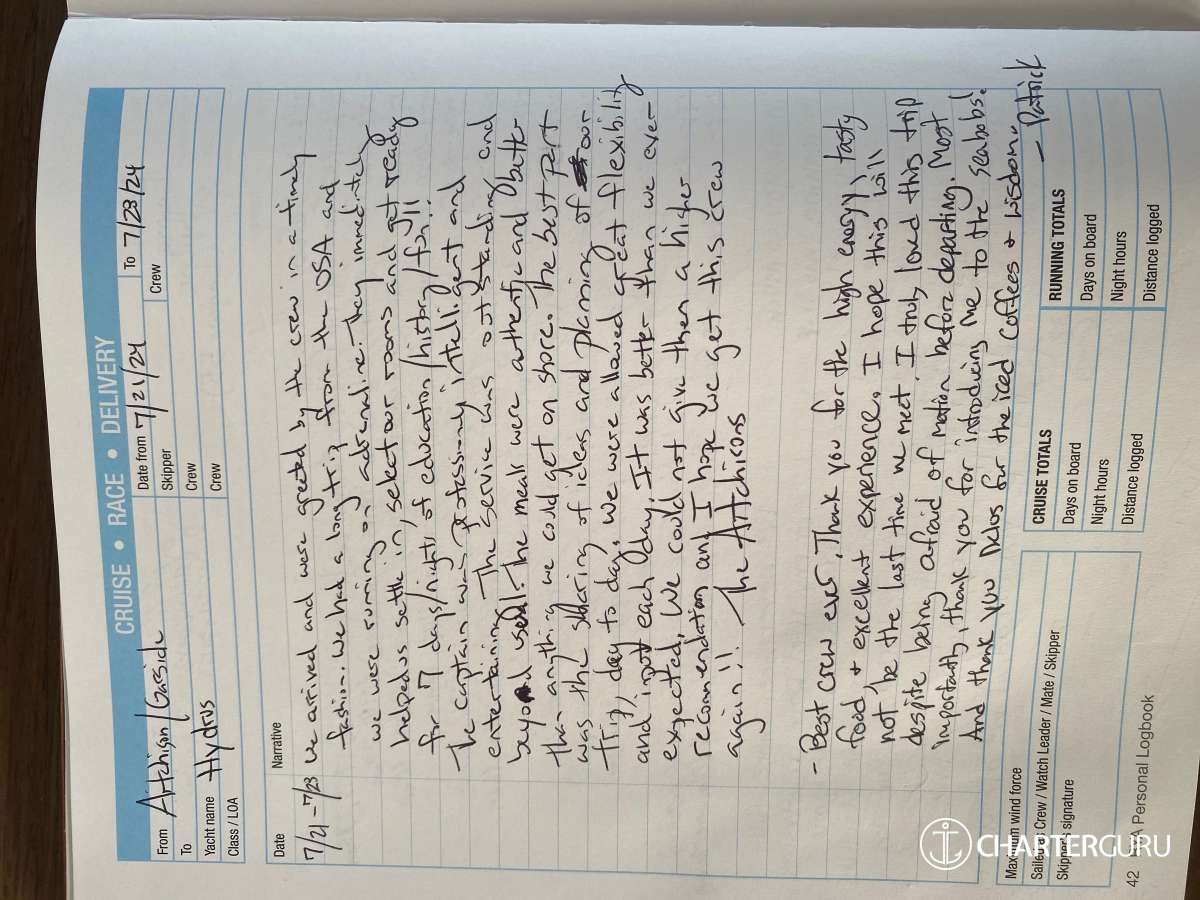 CRUISE • RACE • DELIVERY
From Aitchison/Garside
Date from 7/21/24 To 7/28/24
To
Skipper
Crew
Yacht name Hydrus
Crew
Class / LOA
Crew
Date Narrative
7/21-7/28 We arrived and were greeted by the crew in a timely
fashion. We had a long trip from the USA and
we were running on adrenaline. They immediately
helped us settle in, select our rooms and get ready
for 7 days/nights of education/history/fun!!
The captain was professional, intelligent and
entertaining. The service was outstanding and
beyond useful. The meals were authentic and better
than anything we could get on shore. The best part
was the sharing of ideas and planning of our
trip, day to day. We were allowed great flexibility
and input each day. It was better than we ever
expected. We could not give then a higher
recommendation and I hope we get this crew
again!! The Aitchisons
- Best crew ever, Thank you for the high energy, tasty
food, + excellent experience. I hope this will
not be the last time we meet. I truly loved this trip
despite being afraid of motion before departing. Most
importantly, thank you for introducing me to the seabobs!
And thank you Delos for the iced coffees + wisdom.
- Patrick
Maximum wind force
Sailed as Crew / Watch Leader / Mate / Skipper
Skipper's signature
CRUISE TOTALS
Days on board
Night hours
Distance logged
RUNNING TOTALS
Days on board
Night hours
Distance logged
42 RYA Personal Logbook
CHARTERGURU